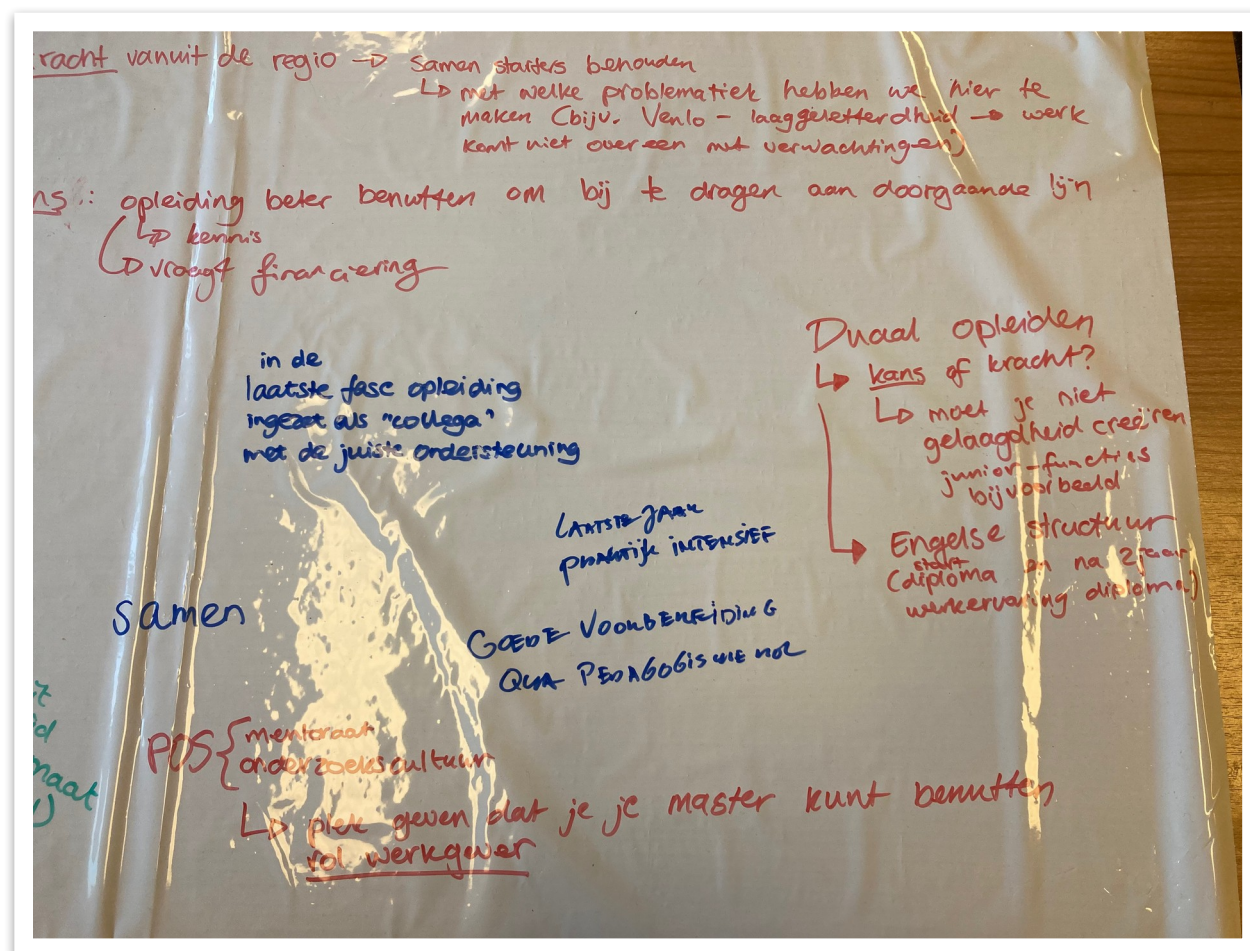 racht vanuit de regio → samen starters behouden
↳ met welke problematiek hebben we hier te
maken (bijv. Venlo - laaggeletterdheid → werk
komt niet overeen met verwachtingen)
ns: opleiding beter benutten om bij te dragen aan doorgaande lijn
↳ kennis
↳ vraagt financiering
in de
laatste fase opleiding
ingezet als "collega"
met de juiste ondersteuning
Duaal opleiden
↳ kans of kracht?
↳ moet je niet
gelaagdheid creëren
junior-functies
bijvoorbeeld
↳ Engelse structuur
start
(diploma en na 2 jaar
werkervaring diploma)
LAATSTE JAAR
PRAKTIJK INTENSIEF
samen
GOEDE VOORBEREIDING
QUA PEDAGOGISCHE ROL
POS { mentoraat
onderzoekscultuur
↳ plek geven dat je je master kunt benutten
rol werkgever
maat